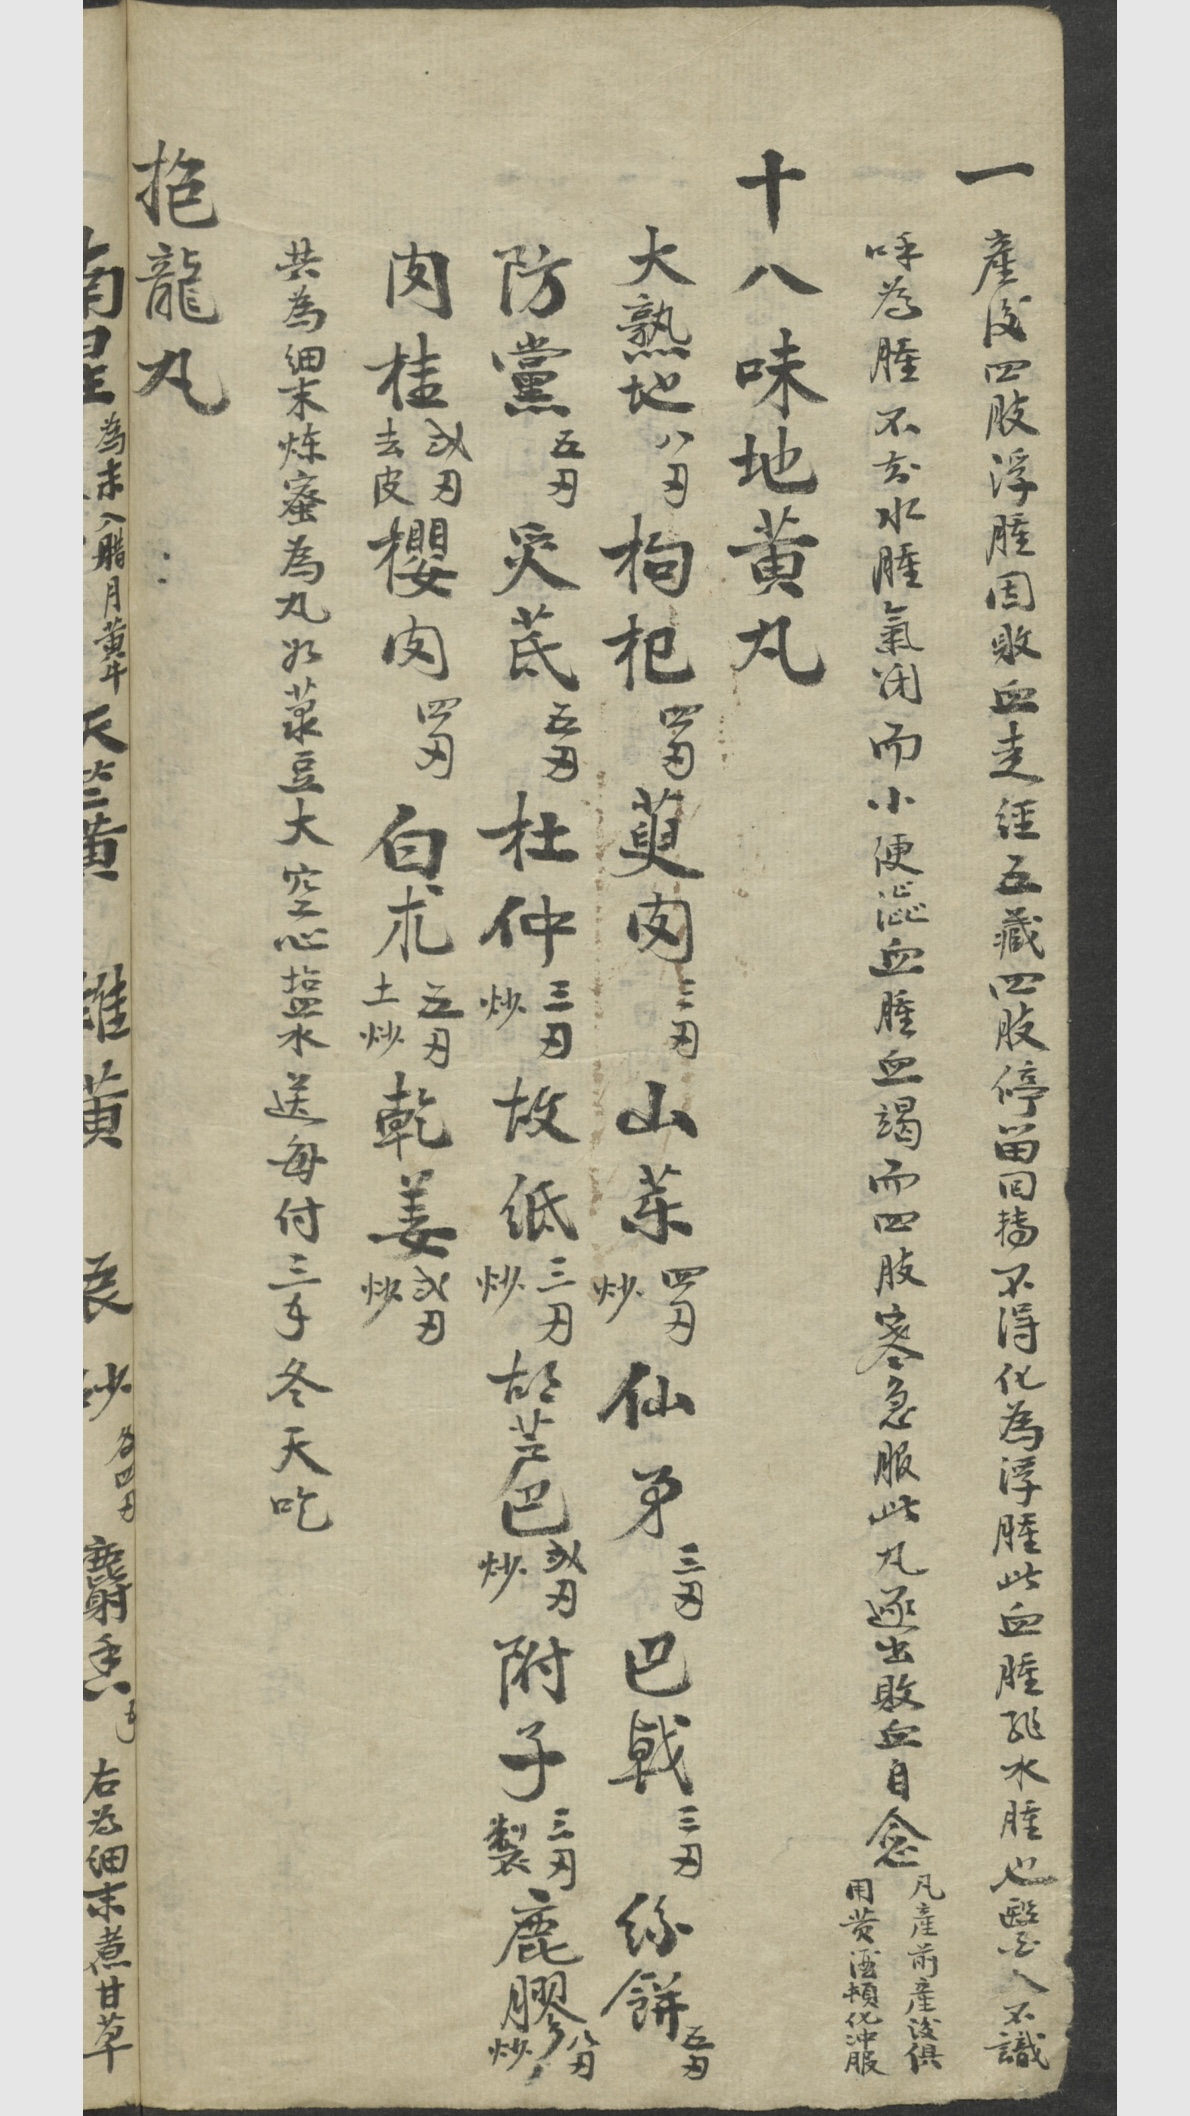 一 產後四肢浮腫因敗血走經五藏四肢停畄回轉不得化為浮腫此血腫非水腫也醫人不識
呼為腫不知水腫氣闭而小便澁血腫血竭而四肢寒急服此丸逐出敗血自愈
凡產前產後俱
用黄酒頓化冲服
十八味地黄丸
大熟地八刃 枸杞四刃 萸肉三刃 山藥四刃炒 仙茅三刃 巴戟三刃 絲餅五刃
防黨五刃 炙芪五刃 杜仲三刃炒 故纸三刃炒 胡芦巴弍刃炒 附子三刃製 鹿膠八刃炒
肉桂弍刃去皮 櫻肉四刃 白朮五刃土炒 乾姜弍刃炒
共為细末炼蜜為丸如菉豆大空心塩水送每付三子冬天吃
抱龍丸
南星為末入腊月黄牛 天竺黄 雄黄 辰砂各四刃 麝香 右為细末煮甘草